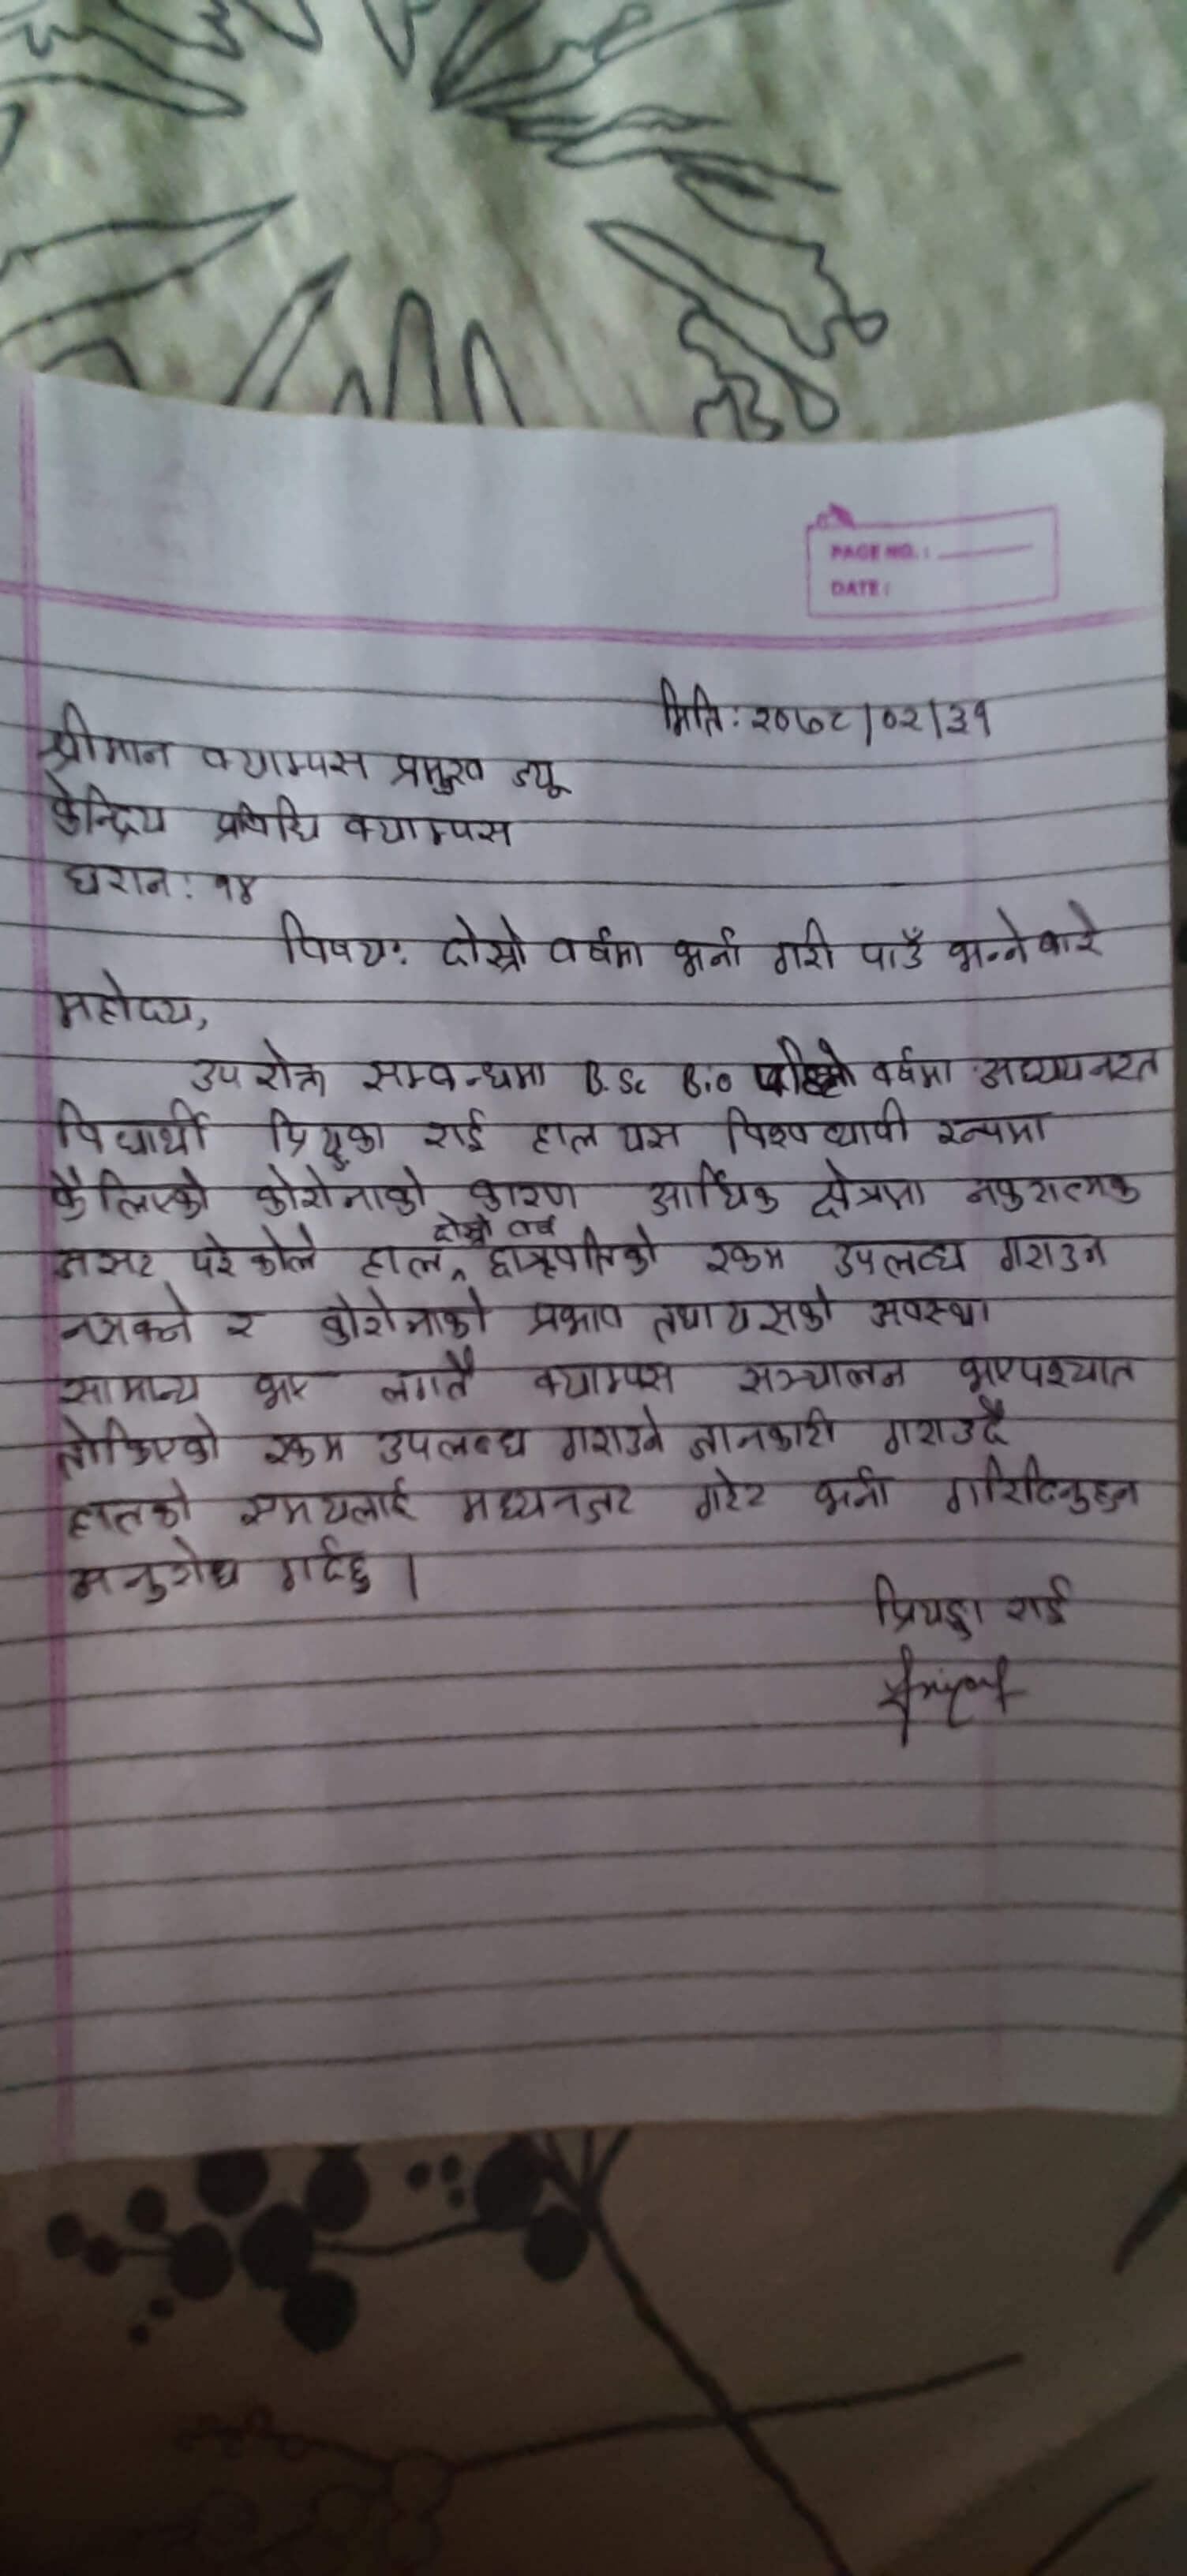 PAGE NO.:
DATE:
मिति: २०७८/०२/३१
श्रीमान क्याम्पस प्रमुख ज्यू
केन्द्रिय प्रविधि क्याम्पस
धरान: १४
विषय: दोस्रो वर्षमा भर्ना गरी पाउँ भन्ने बारे
महोदय,
उपरोक्त सम्बन्धमा B.Sc Bio पहिलो वर्षमा अध्ययनरत
विद्यार्थी प्रियङ्का राई हाल यस विश्वव्यापी रुपमा
फैलिएको कोरोनाको कारण आर्थिक क्षेत्रमा नकरात्मक
असर परेकोले हाल दोस्रो वर्ष छात्रवृतिको रकम उपलब्ध गराउन
नसक्ने र कोरोनाको प्रभाव तथा यसको अवस्था
सामान्य भए लगतै क्याम्पस सञ्चालन भएपश्चात
तोकिएको रकम उपलब्ध गराउने जानकारी गराउदै
हालको समयलाई मध्यनजर गरेर भर्ना गरिदिनुहुन
अनुरोध गर्दछु ।
प्रियङ्का राई